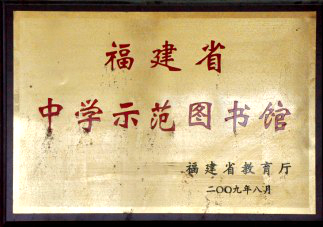 福建省
中学示范图书馆
福建省教育厅
二〇〇九年八月